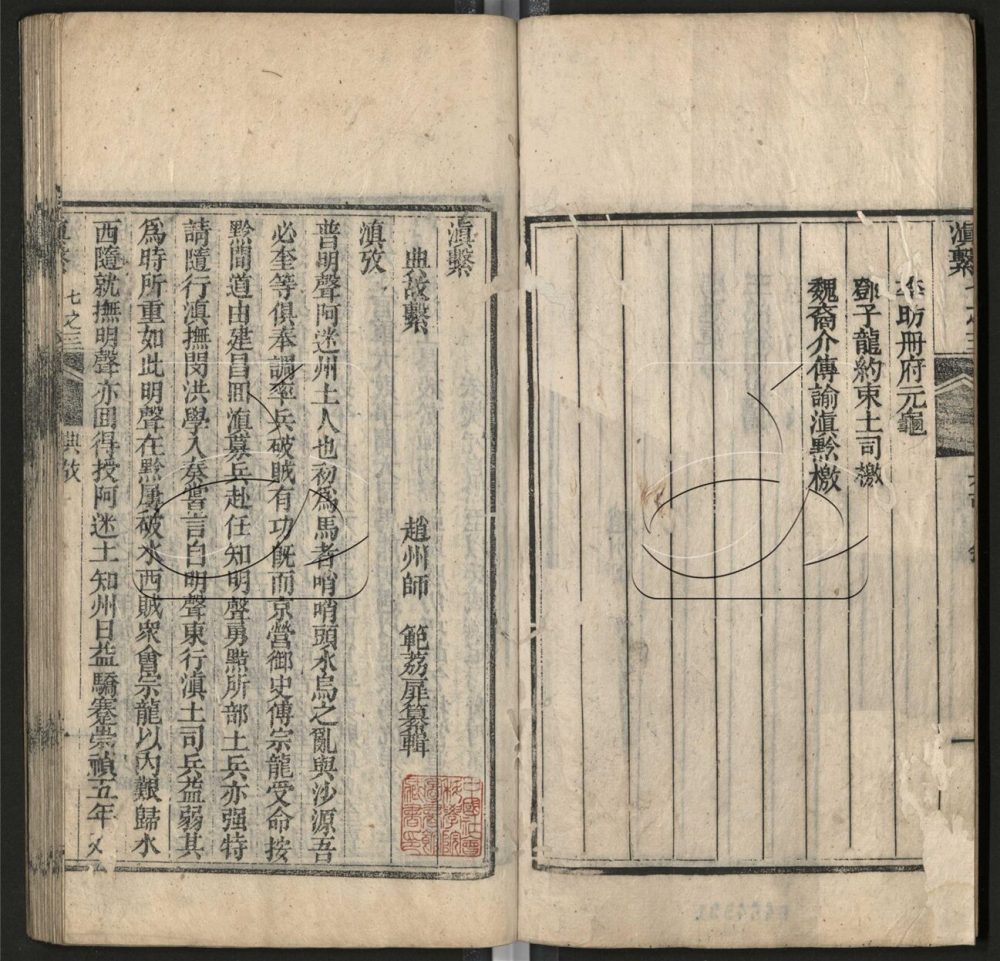 滇繫
李昉冊府元龜
鄧子龍約束土司檄
魏裔介傳諭滇黔檄
滇繫
典故繫
趙州師 範荔扉纂輯
滇攷
普明聲阿迷州土人也初為馬者哨哨頭水烏之亂與沙源吾
必奎等俱奉調率兵破賊有功既而京營御史傅宗龍受命按
黔間道由建昌囬滇募兵赴任知明聲勇黠所部土兵亦强特
請隨行滇撫閔洪學入奏嘗言自明聲東行滇土司兵益弱其
為時所重如此明聲在黔屢破水西賊眾會宗龍以內艱歸水
西隨就撫明聲亦囬得授阿迷土知州日益驕蹇崇禎五年
七之三
典攷